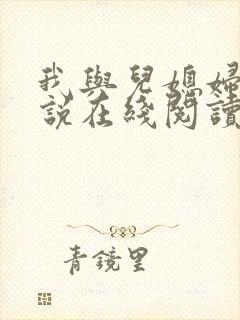 我與兒媳婦
說在綫閱讀
青鏡里